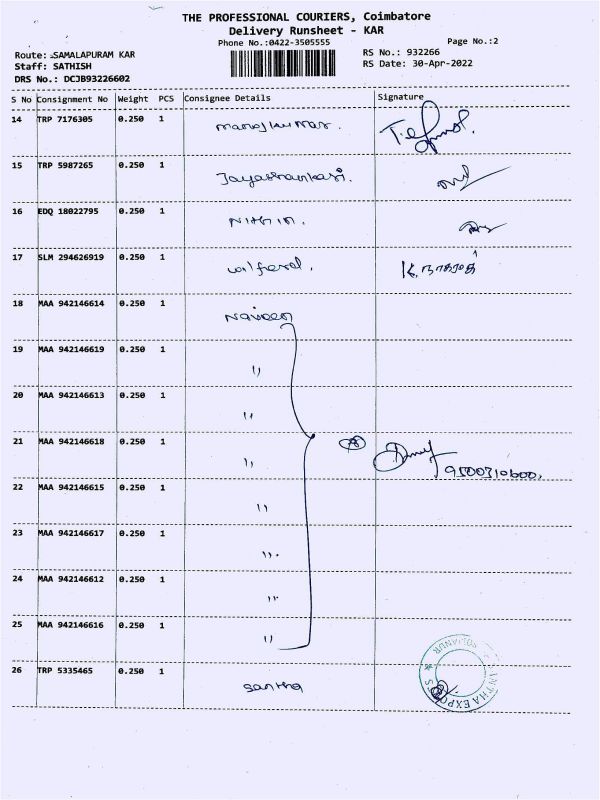 THE PROFESSIONAL COURIERS, Coimbatore
Delivery Runsheet - KAR
Phone No.:0422-3505555
Page No.:2
Route: SAMALAPURAM KAR
RS No.: 932266
Staff: SATHISH
RS Date: 30-Apr-2022
DRS No.: DCJB93226602
S No Consignment No Weight PCS Consignee Details Signature
14 TRP 7176305 0.250 1 manojkumar.
15 TRP 5987265 0.250 1
16 EDQ 18022795 0.250 1 Nithin.
17 SLM 294626919 0.250 1
18 MAA 942146614 0.250 1 Naveen
19 MAA 942146619 0.250 1 ,,
20 MAA 942146613 0.250 1 ,,
21 MAA 942146618 0.250 1 ,, 8 9500710600.
22 MAA 942146615 0.250 1 ,,
23 MAA 942146617 0.250 1 ,,.
24 MAA 942146612 0.250 1 ,,
25 MAA 942146616 0.250 1 ,,
26 TRP 5335465 0.250 1 santha